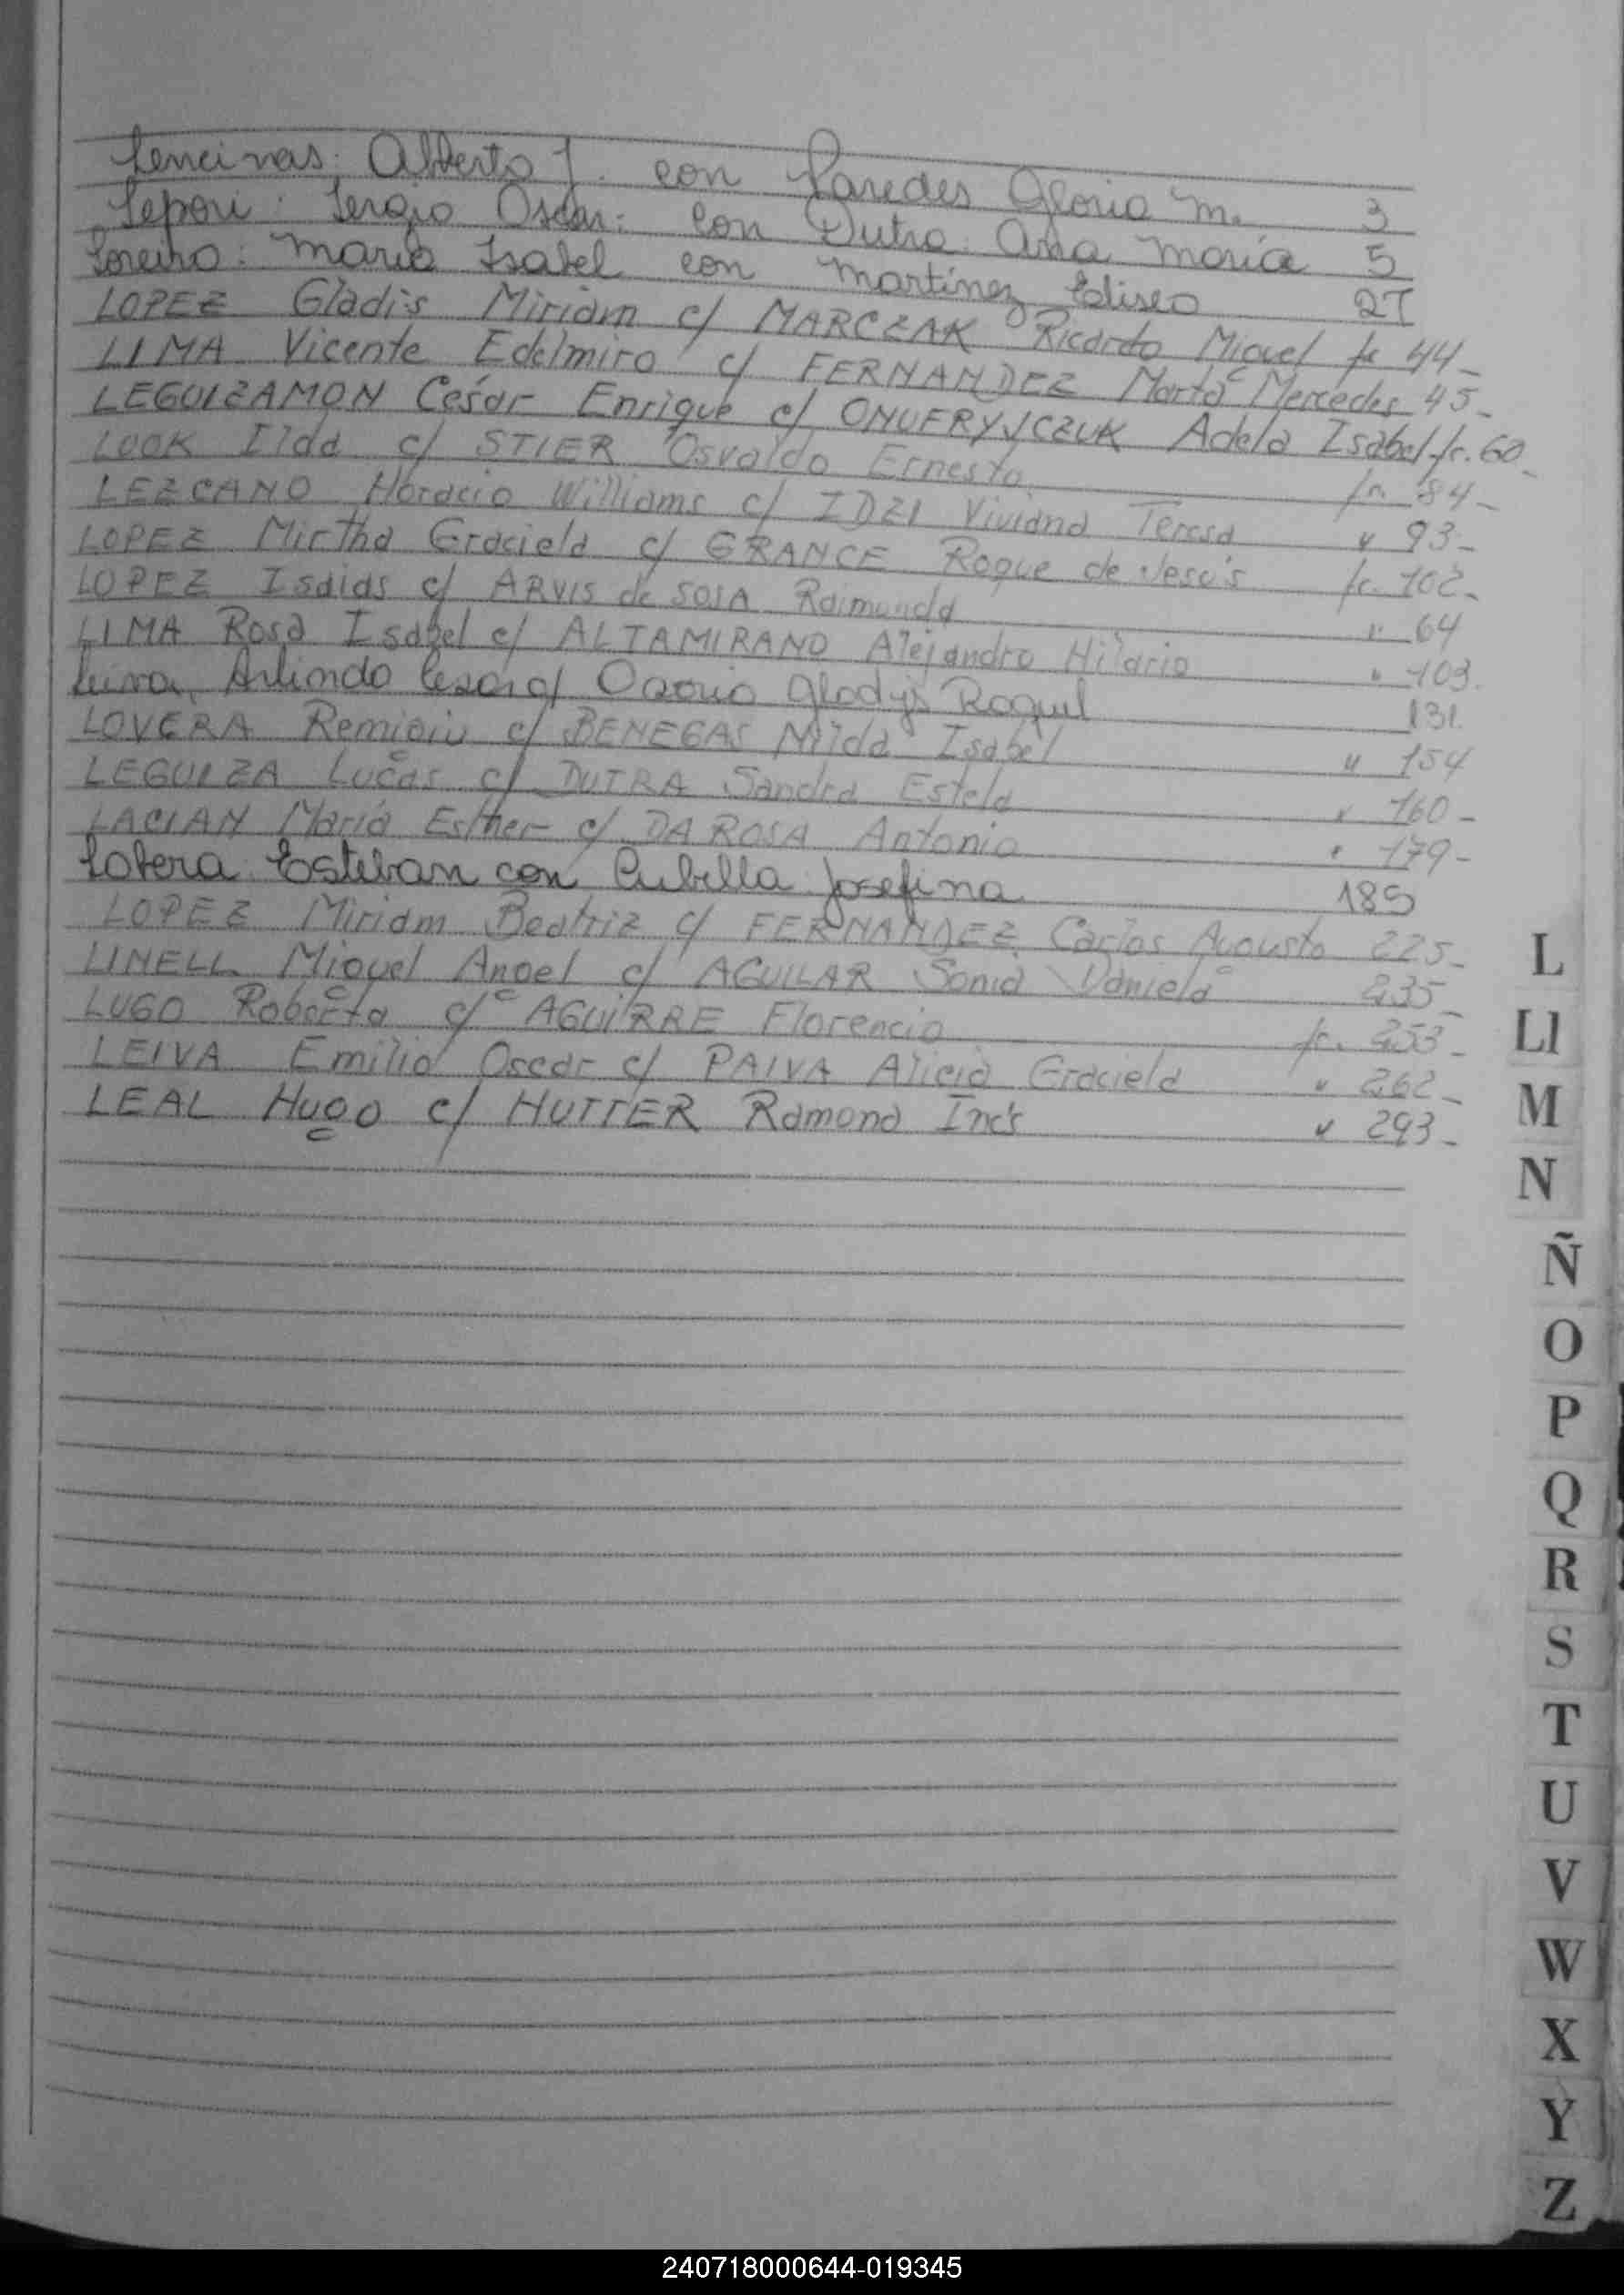 Lencinas: Alberto J. con Paredes Gloria M. 3
Lepori: Sergio Oscar: con Dutra: Ana María 5
Loreiro: María Isabel con Martínez Eliseo 27
LOPEZ Gladis Miriam c/ MARCZAK Ricardo Miguel fc 44-
LIMA Vicente Edelmiro c/ FERNANDEZ Marta Mercedes 45-
LEGUIZAMON César Enrique c/ ONUFRYJCZUK Adela Isabel fc. 60-
LOOK Ilda c/ STIER Osvaldo Ernesto fc. 84-
LEZCANO Horacio Williams c/ IDZI Viviana Teresa " 93-
LOPEZ Mirtha Graciela c/ GRANCE Roque de Jesús fc. 102-
LOPEZ Isaias c/ ARVIS de SOSA Raimunda " 64
LIMA Rosa Isabel c/ ALTAMIRANO Alejandro Hilario " 103.
Leiva, Arlindo Cesar c/ Osorio Gladys Raquel 131.
LOVERA Remigio c/ BENEGAS Nilda Isabel " 154
LEGUIZA Lucas c/ DUTRA Sandra Estela " 160-
LACIAN María Esther c/ DA ROSA Antonio " 179-
Lobera Esteban con Cubilla Josefina 185
LOPEZ Miriam Beatriz c/ FERNANDEZ Carlos Augusto 225-
LINELL Miguel Angel c/ AGUILAR Sonia Daniela 235-
LUGO Roberta c/ AGUIRRE Florencio fc. 253-
LEIVA Emilio Oscar c/ PAIVA Alicia Graciela " 262-
LEAL Hugo c/ HUTTER Ramona Inés " 293-
L
Ll
M
N
Ñ
O
P
Q
R
S
T
U
V
W
X
Y
Z
240718000644-019345